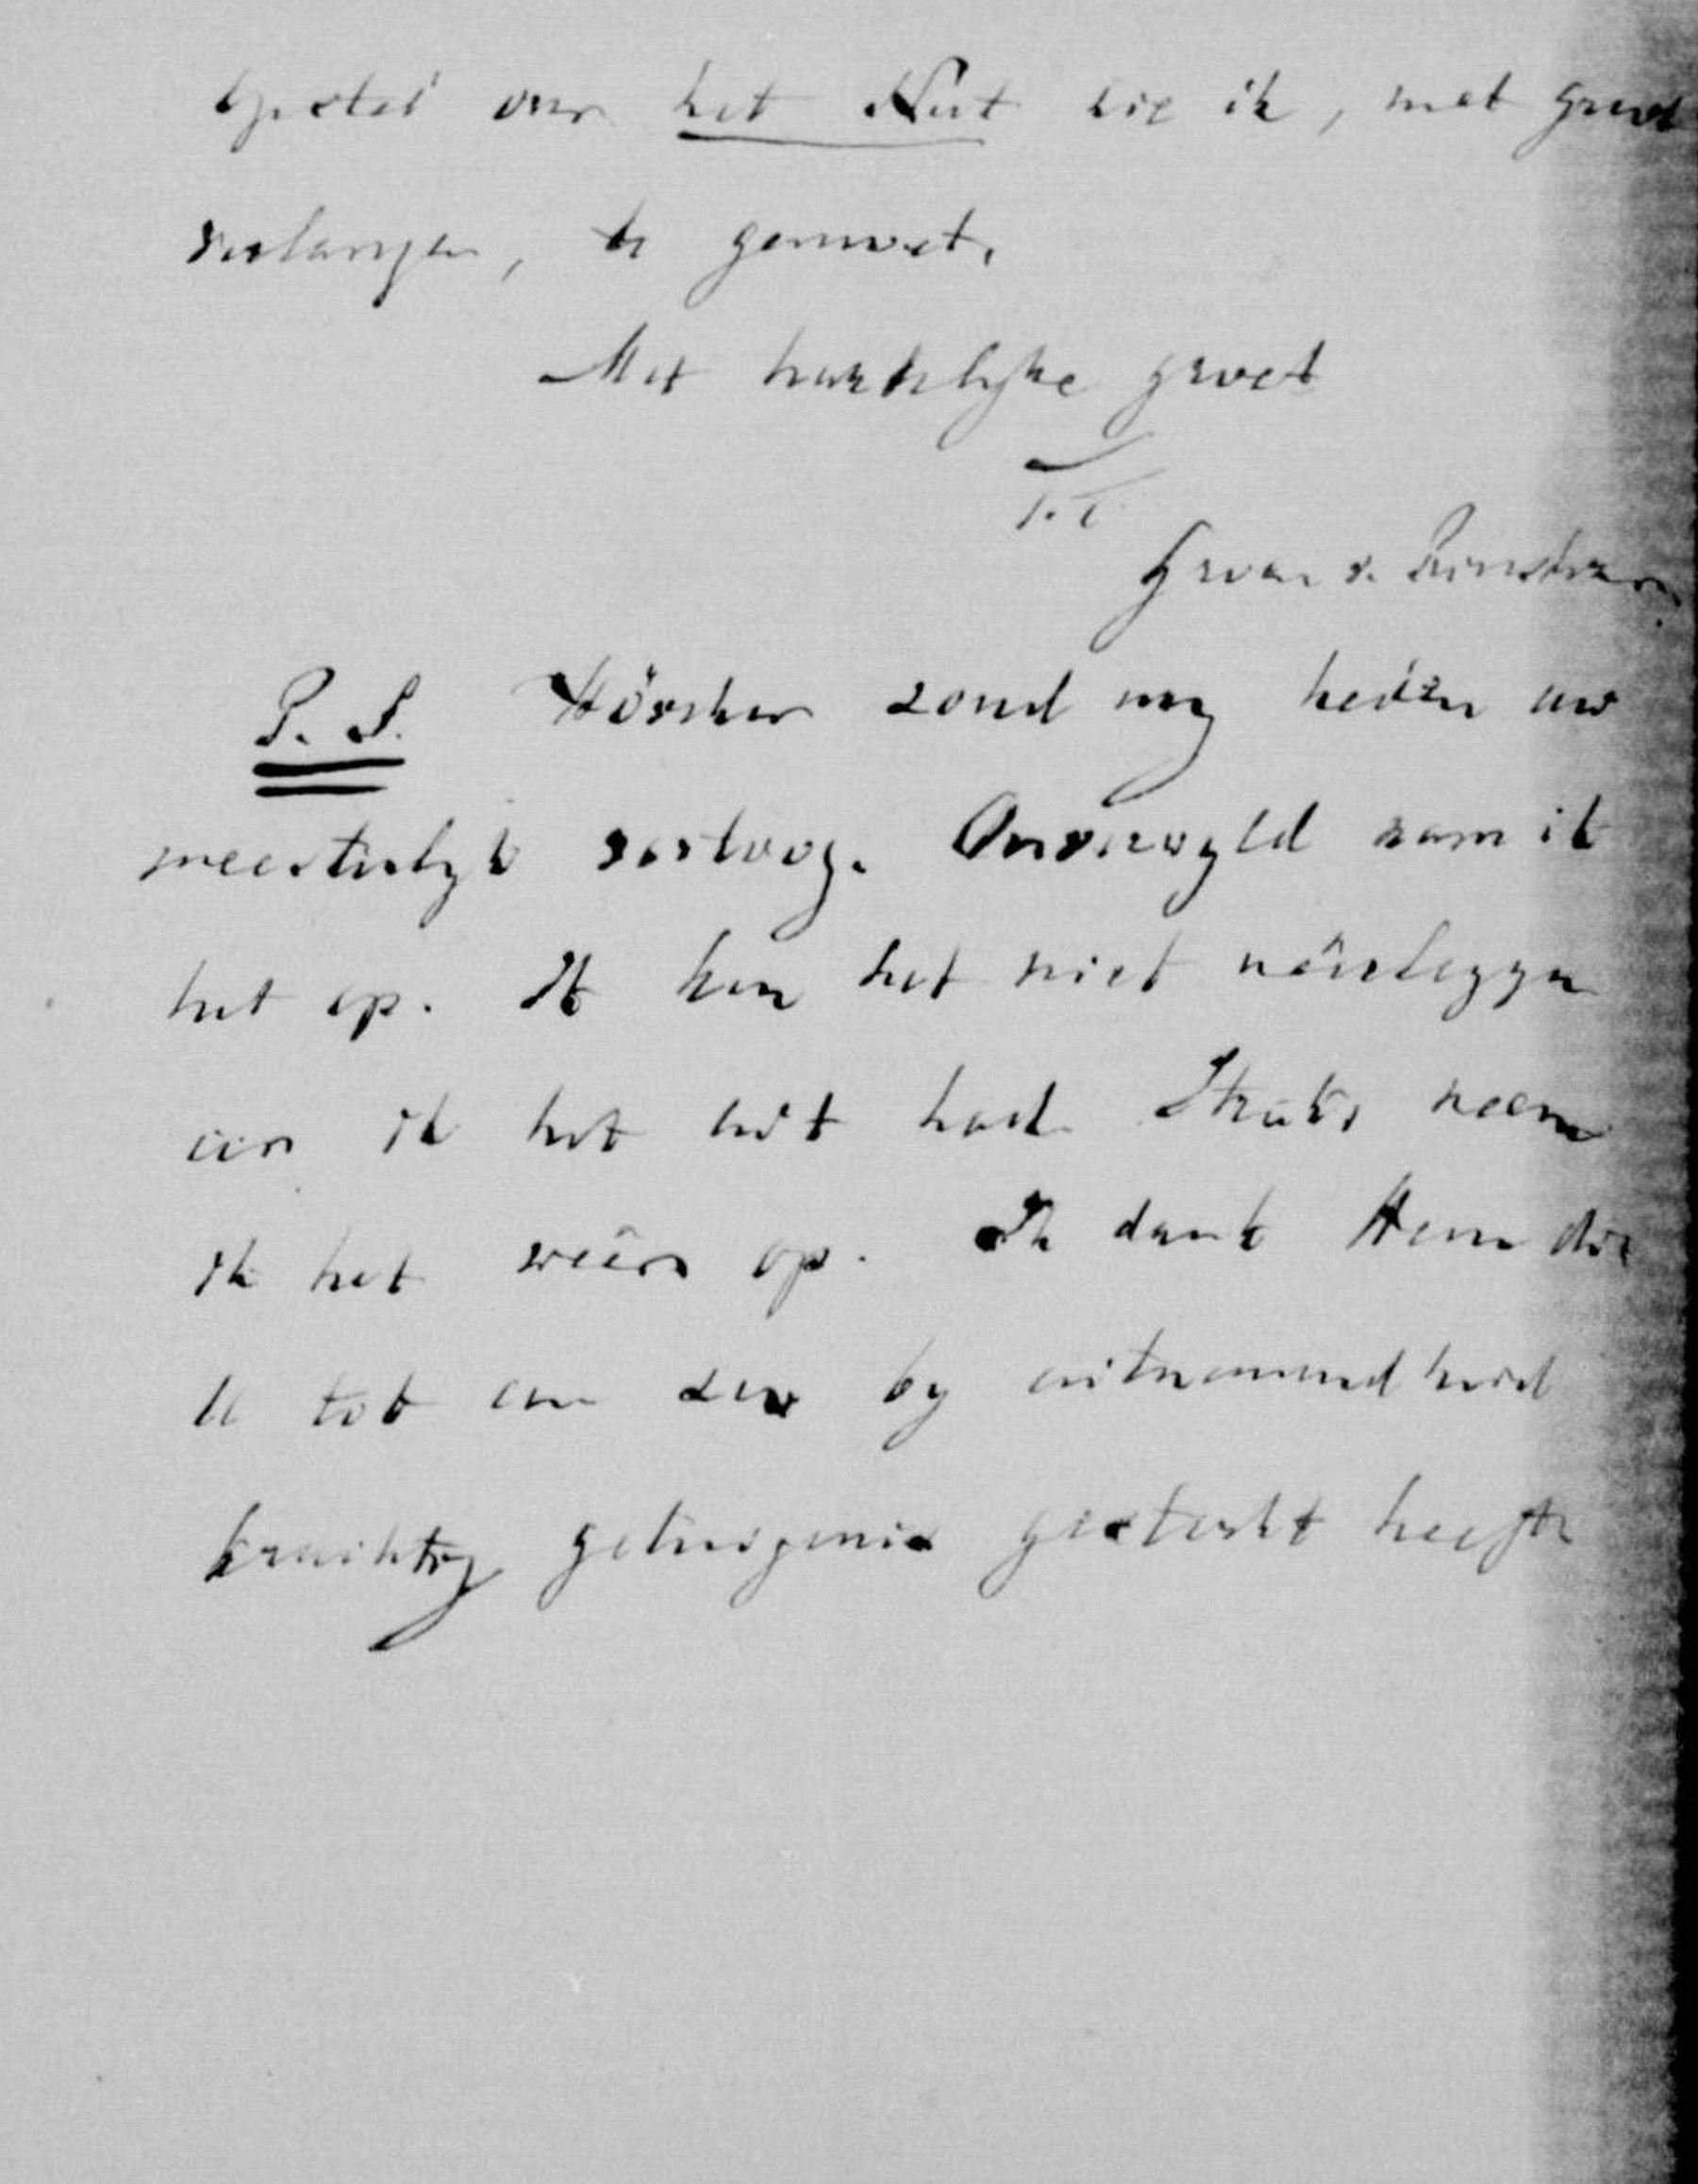 opstel over het Nut zie ik, met groot
verlangen, te gemoet.
Met hartelyke groet
T.T.
Groen v. Prinsterer
P.S. Höveker zond my heden uw
meesterlyk vertoog. Onverwyld nam ik
het op. Ik kon het niet nêerleggen
eer ik het uit had. Straks neem
ik het wêer op. Ik dank Hem die
U tot een zoo by uitnemendheid
krachtig getuigenis gesterkt heeft